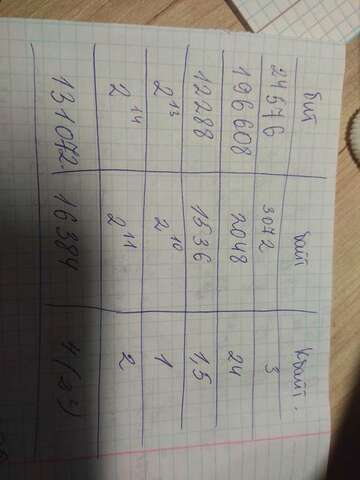 бит байт Кбайт.
24576 3072 3
196608 2048 24
12288 1536 1,5
2¹³ 2¹⁰ 1
2¹⁴ 2¹¹ 2
131072 16384 4 (2²)